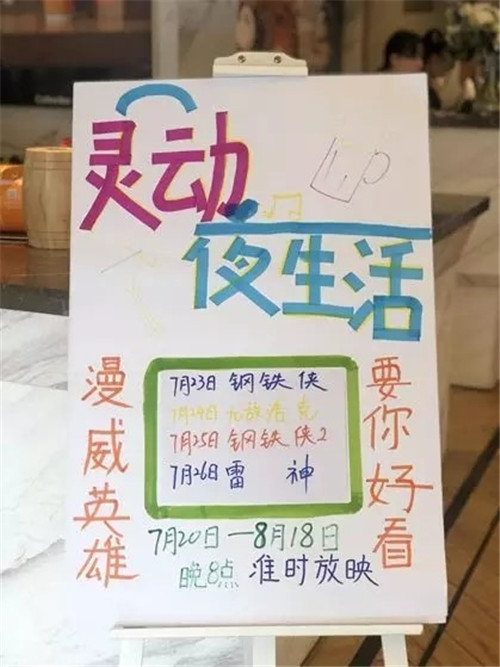 灵动
夜生活
漫威英雄
7月23日 钢铁侠
7月24日 九败浩克
7月25日 钢铁侠2
7月26日 雷 神
要你好看
7月20日—8月18日
晚8点 准时放映